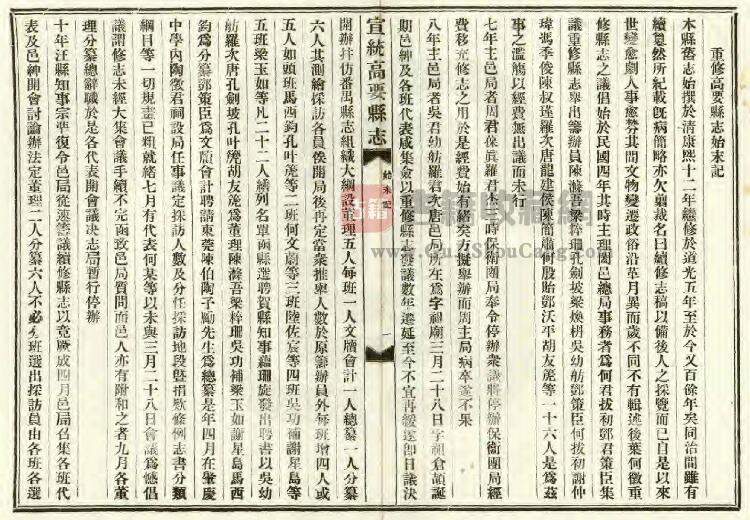 重修高要縣志始末記
本縣舊志始撰於清康熙十二年續修於道光五年至於今又百餘年矣同治間雖有
續　然所紀載旣病簡略亦欠翦裁名曰續修志稿以備後人之採覽而已自是以來
世變愈劇人事愈繁其間文物變遷政俗沿革月異而歲不同不有輯述後葉何徵重
修縣志之議倡始於民國四年其時主理闔邑總局事務者爲何君拔初鄧君策臣集
議重修縣志舉出籌辦員陳滌吾梁梓珊孔劍坡梁煥枬吳幼舫鄧策臣何拔初謝仲
瑋馮季俊陳叔瑾羅次唐龍建侯陳簡蕭何殷貽鄧沃平胡友箎等一十六人是爲茲
事之濫觴以經費無出議而未行
七年主邑局者周君保眞羅君杰三時保衛團局奉令停辦衆議將停辦保衛團局經
費移充修志之用於是經費始有緒矣方擬舉辦而周主局病卒遂不果
八年主邑局者吳君幼舫羅君次唐邑局所在爲字祖廟三月二十八日字祖倉頡誕
期邑紳及各班代表咸集僉以重修縣志發議數年遷延至今不宜再緩遂卽日議決
宣統高要縣志
始末記
一
開辦并仿番禺縣志組織大綱設董理五人每班一人文牘會計一人總纂一人分纂
六人其測繪採訪各員俟開局後再定當衆推舉人數於原籌辦員外每班增四人或
五人如頭班馬西鈞孔叶箎等二班何文蔚等三班陸佐宸等四班吳功補謝星島等
五班梁玉如等凡二十二人繕列名單函縣選聘賀縣知事蘊珊旋發出聘書以吳幼
舫羅次唐孔劍坡孔叶箎胡友箎爲董理陳滌吾梁梓珊吳功補梁玉如謝星島馬西
鈞爲分纂鄧策臣爲文牘會計聘請東莞陳伯陶子勵先生爲總纂是年四月在肇慶
中學內陶徵君祠設局任事議定採訪人數及分任採訪地段暨捐欵條例志書分類
綱目等一切規畫已粗就緒七月有代表何某等以未與三月二十八日會議爲憾倡
議謂修志未經大集會議手續不完函致邑局質問而邑人亦有附和之者九月各董
理分纂總辭職於是各代表開會議決志局暫行停辦
十年汪縣知事宗準復令邑局從速籌議續修縣志以竟厥成四月邑局召集各班代
表及邑紳開會討論辦法定董理二人分纂六人不必　班選出採訪員由各班各選